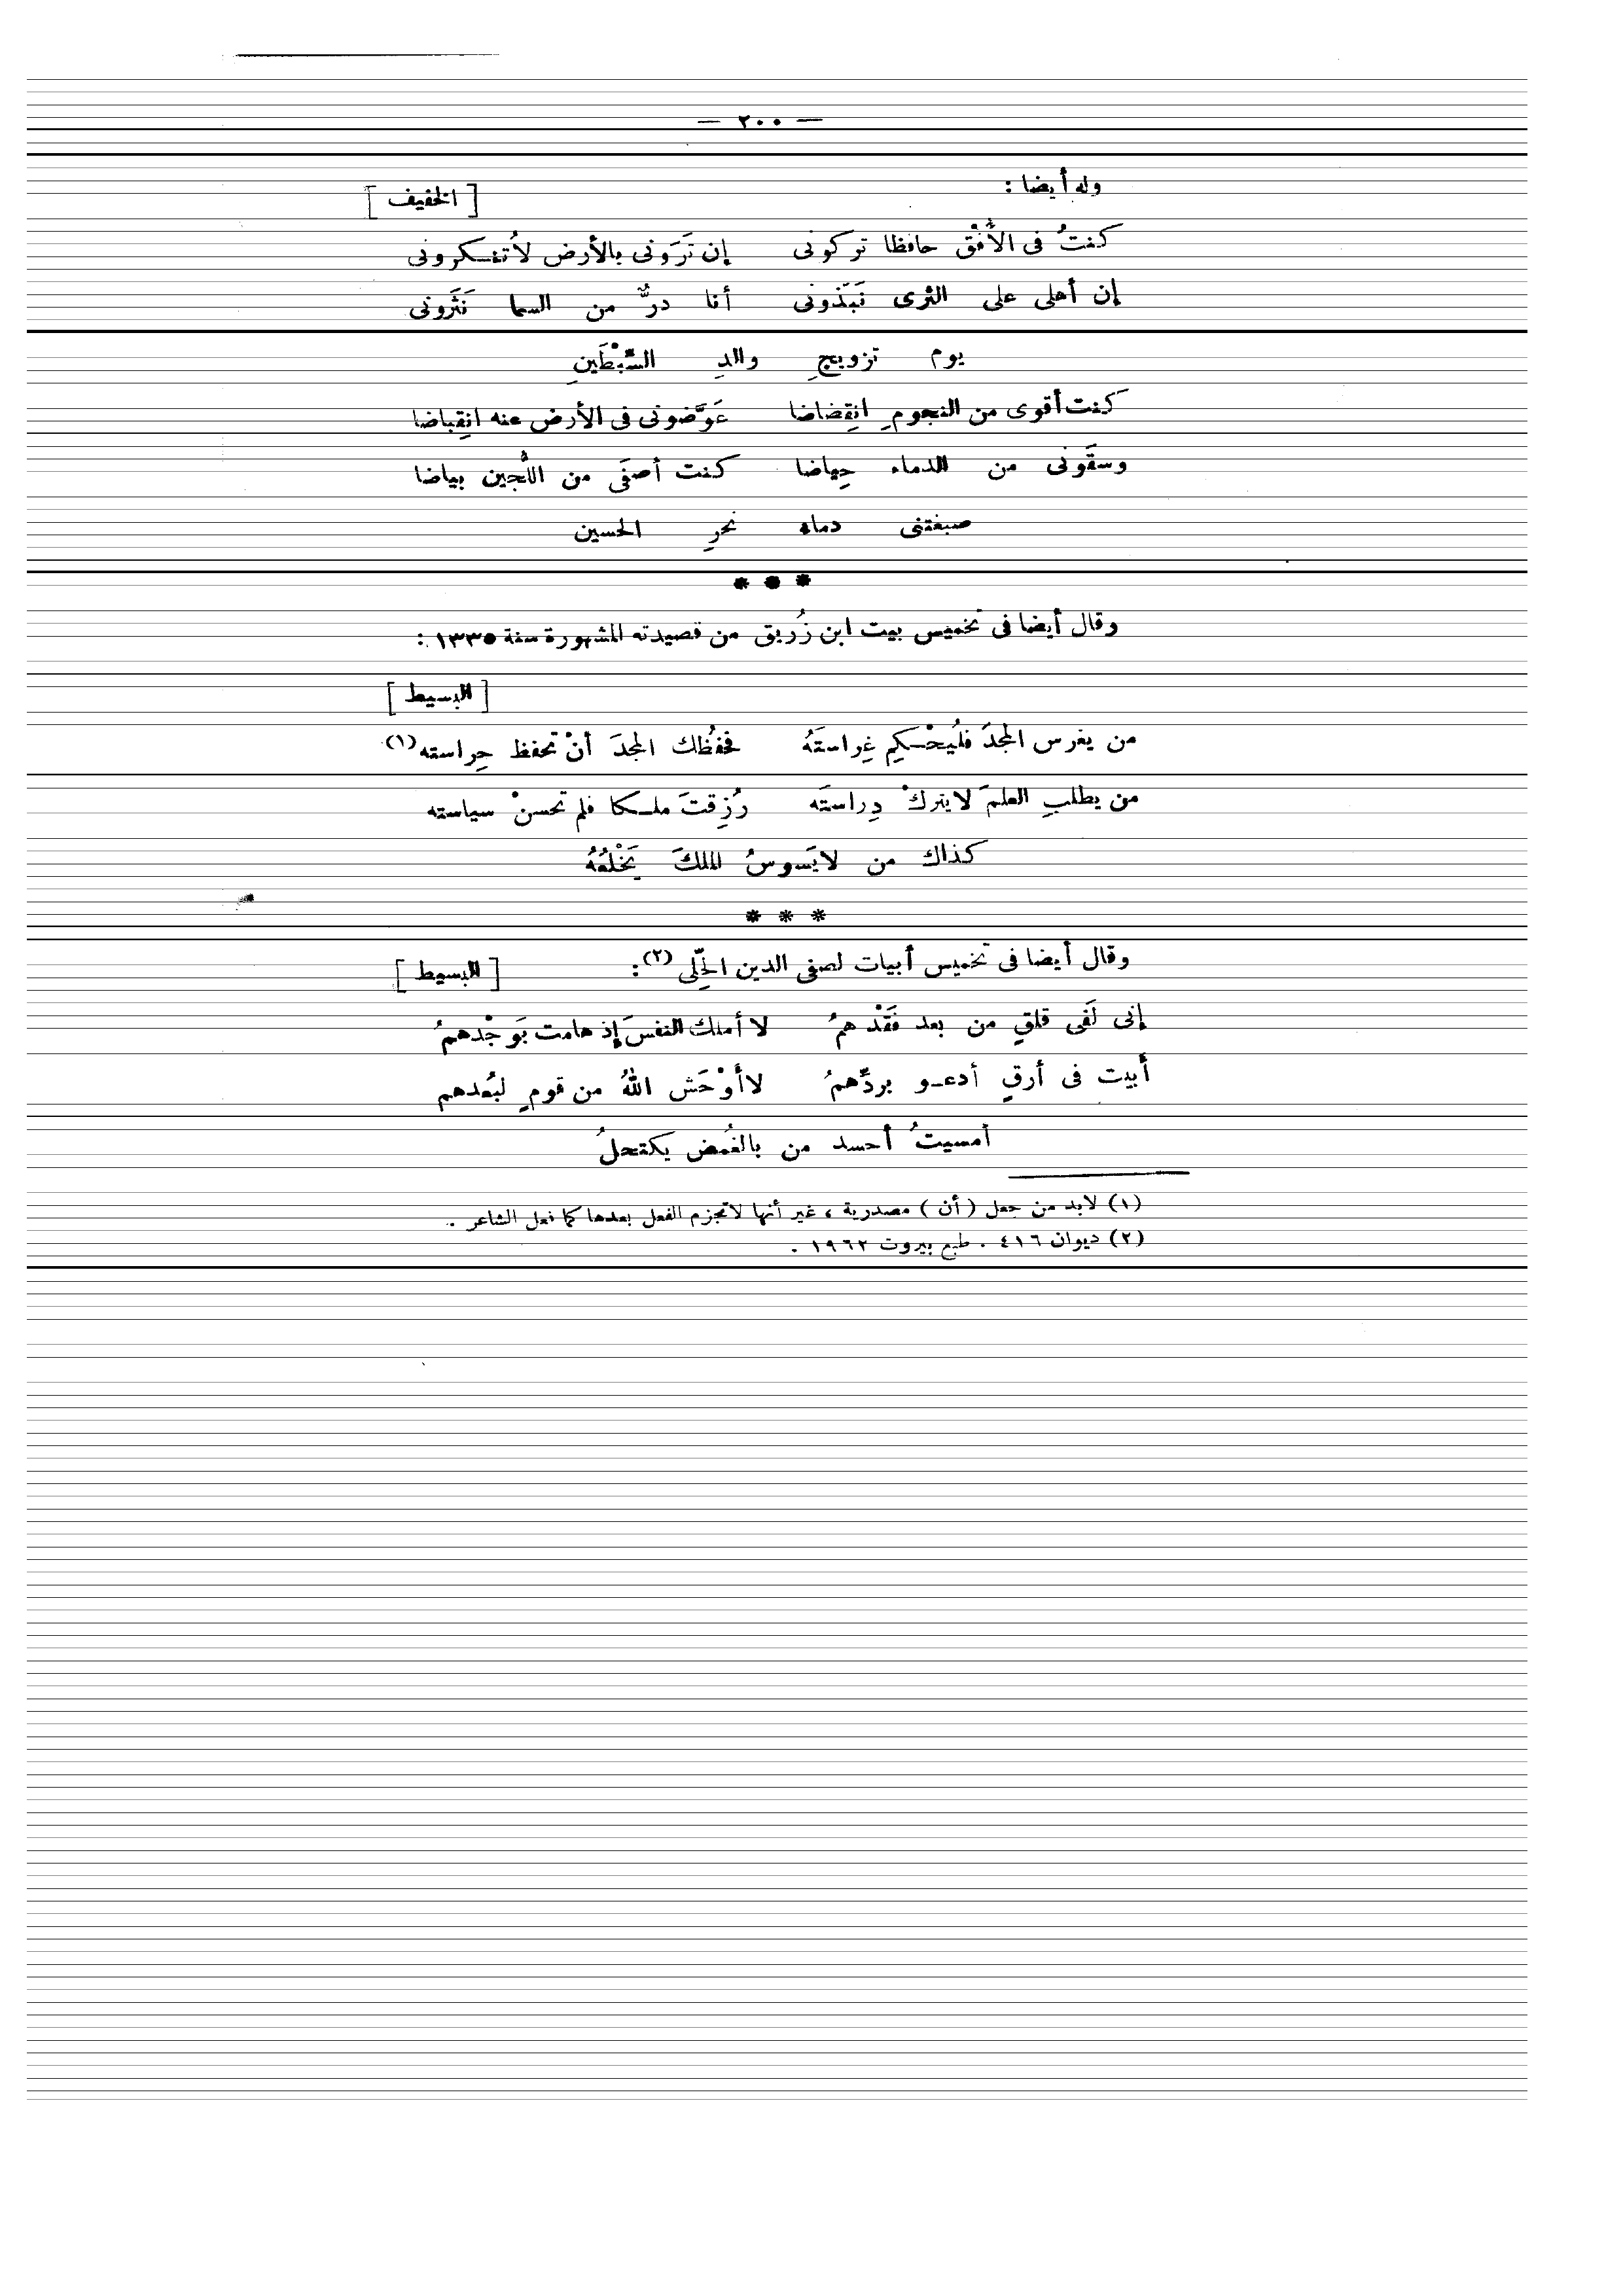 — ٢٠٠ —
وله أيضا : [ الخفيف ]
كنتُ فى الأُفُق حافظا تركونى إن تَرَونى بالأرض لا تنكرونى
إن أهلى على الثرى نَبَذونى أنا درٌّ من السما نَثَرونى
يوم تزويجِ والدِ السِّبْطَينِ
كنت أقوى من النجومِ انقِضاضا عَوَّضونى فى الأرض عنه انقِباضا
وسقَونى من الدماء حِياضا كنت أصفَى من اللُّجين بياضا
صبغتنى دماء نحرِ الحسين
* * *
وقال أيضا فى تخميس بيت ابن زُريق من قصيدته المشهورة سنة ١٣٣٥ :
[ البسيط ]
من يغرس المجدَ فليُحْكِمِ غِراستَهُ فحفُظك المجدَ أنْ تحفظ حِراسته (١)
من يطلبِ العلمَ لا يتركْ دِراستَه رُزِقتَ ملكا فلم تحسنْ سياسته
كذاك من لا يَسوسُ الملكَ يَخْلَعُهُ
* * *
وقال أيضا فى تخميس أبيات لصفى الدين الحِلّى (٢) : [ البسيط ]
إنى لَفى قلقٍ من بعد فَقْدهمُ لا أملك النفسَ إذ هامت بَوَجْدهمُ
أبيت فى أرقٍ أدعو بردِّهمُ لا أَوْحَش اللهُ من قومٍ لبُعدهم
أمسيتُ أحسد من بالغُمض يكتحلُ
(١) لابد من جعل ( أن ) مصدرية ، غير أنها لا تجزم الفعل بعدها كما فعل الشاعر .
(٢) ديوان ٤١٦ . طبع بيروت ١٩٦٢ .